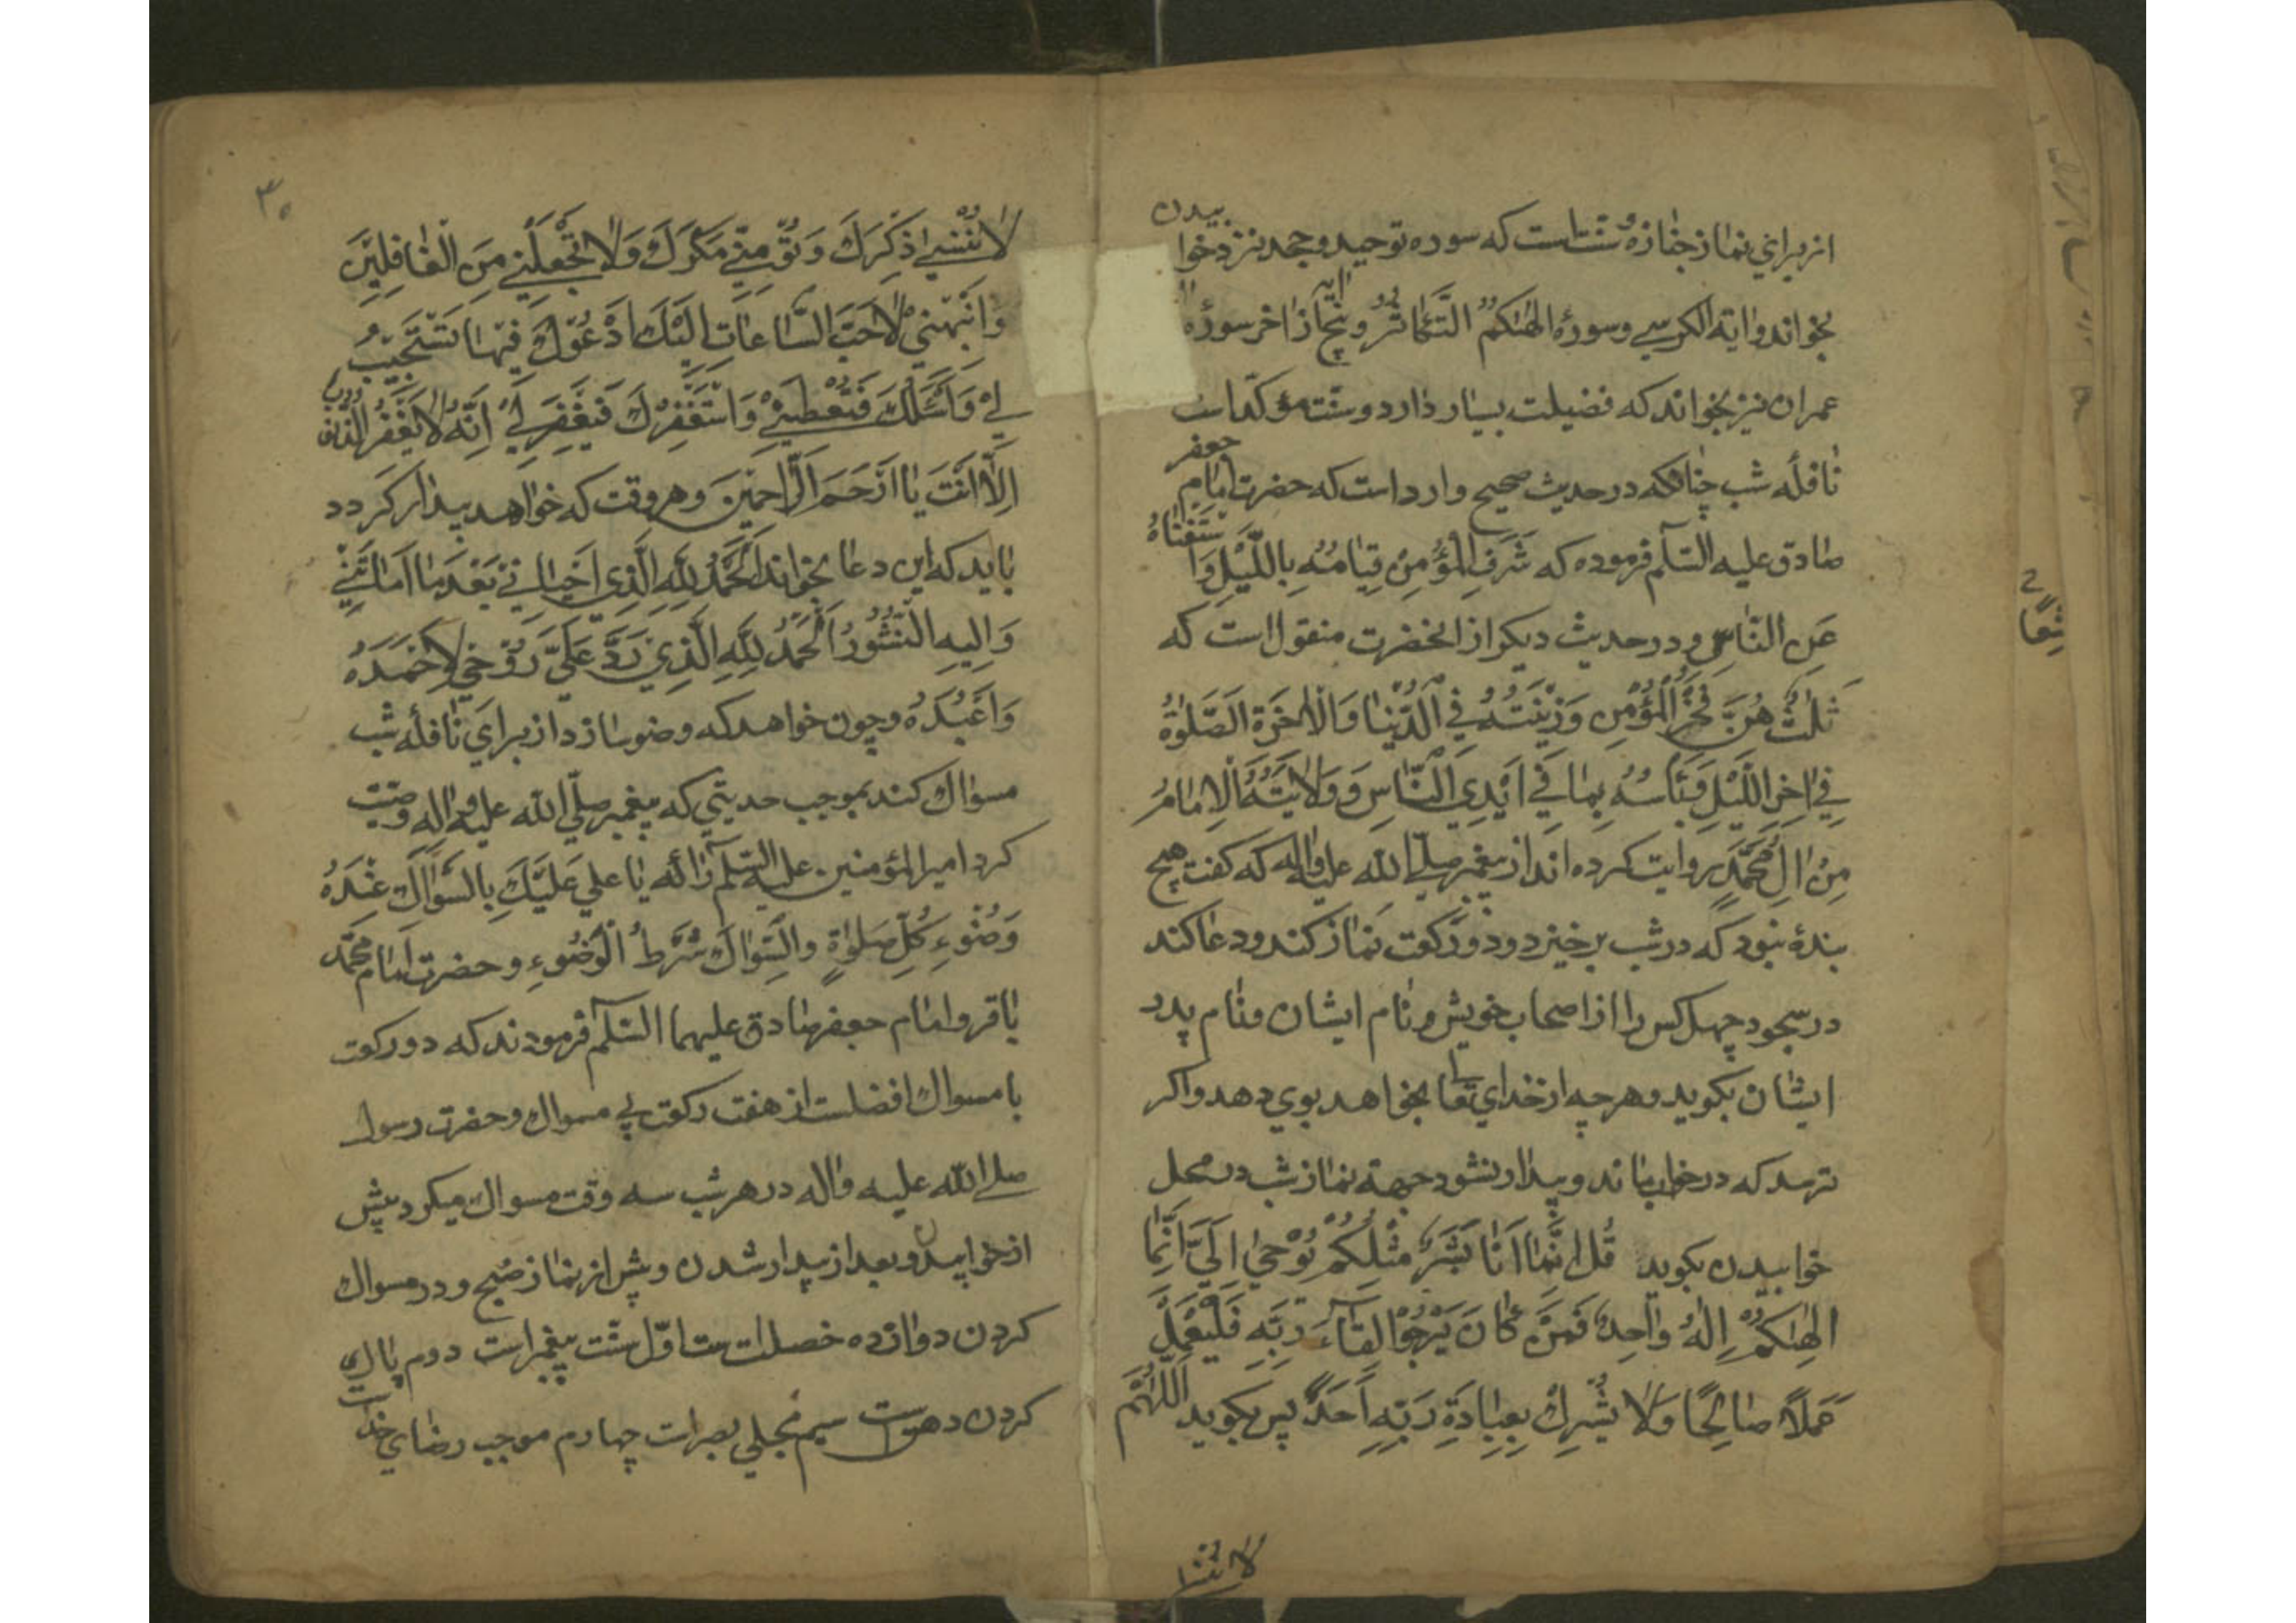 از براي نماز جنازه سنتست كه سوره توحيد و حمد نزد خوا بيدن
بخواند واية الكرسي وسورۀ الهٰيكم التكاثر و پنج ايه از اخر سورۀ
عمران نيز بخواند كه فضيلت بسيار دارد و سنت مؤكداست
نافلۀ شب چنانكه در حديث صحيح وارد است كه حضرت امام جعفر
صادق عليه السّلم فرموده كه شَرَفُ المُؤمِنِ قِيٰامُهُ بِاللَّيْلِ وَاسْتَغْنٰاهُ
عَنِ النّٰاسِ و در حديث ديكر از انحضرت منقول است كه
ثَلٰثٌ هُنَّ فَخْرُ الْمُؤْمِنِ وَزِيْنَتُهُ فِي الدُّنْيٰا وَالْاٰخِرَةِ الصَّلوٰةُ
فِي اٰخِرِ اللَّيْلِ وَيَأْسُهُ بِمٰا فِي اَيْدِي النّٰاسِ وَوَلٰايَتُهُ الْاِمٰامُ
مِنْ اٰلِ مُحَمَّدٍ روايت كرده اند از پيغمبر صلّي الله عليه واله كه كفت هيچ
بندۀ نبود كه در شب برخيزد و دو ركعت نماز كند و دعا كند
در سجود چهل كس را از اصحاب خويش و نام ايشان و نام پدر
ايشان بكويد و هر چه از خداي تعالي بخواهد بوي دهد واكر
ترسد كه در خواب بماند و بيدار نشود جهة نماز شب در محل
خوابيدن بكويد قُل اِنَّمٰا اَنٰا بَشَرٌ مِثْلُكُمْ يُوْحيٰ اِلَيَّ اَنَّمٰا
اِلٰهُكُمْ اِلٰهٌ وٰاحِدٌ فَمَنْ كٰانَ يَرْجُوْا لِقٰاۤءَ رَبِّهِ فَلْيَعْمَلْ
عَمَلاً صٰالِحًا وَلٰا يُشْرِكْ بِعِبٰادَةِ رَبِّهِ اَحَدًا پس بكويد اَللّٰهُمَّ
لا تُنْسِني
لاٰ تُنْسِنِي ذِكْرَكَ وَ تُؤْمِنِّي مَكْرَكَ وَلاٰ تَجْعَلْنِي مِنَ الْغٰافِلِيْنَ
وَانَبِّهْنِي لِاَحَبِّ السّٰاعٰاتِ اِلَيْكَ اَدْعُوْكَ فِيْهٰا تَسْتَجِيْبُ
لِيْ وَاَسْئَلُكَ فَتُعْطِيَنِيْ وَ اسْتَغْفِرُكَ فَيَغْفِرَ لِيْ اِنَّهُ لاٰ يَغْفِرُ الذُّنُوب
اِلاّٰ اَنْتَ يٰا اَرْحَمَ الرّٰاحِمِيْنَ وهر وقت كه خواهد بيدار كردد
بايد كه اين دعا بخواند اَلْحَمْدُ لِلّٰهِ الَّذِي اَحْيٰانِيْ بَعْدَ مٰا اَمٰاتَنِيْ
وَاِلَيهِ النُّشُورُ اَلْحَمْدُ لِلّٰهِ الَّذِي رَدَّ عَلَيَّ رُوْحِي لِاَحْمَدَهُ
وَاَعْبُدَهُ و چون خواهد كه وضو سازد از براي نافلۀ شب
مسواك كند بموجب حديثي كه پيغمبر صلّي الله عليه واله وصيّت
كرد امير المؤمنين عليه السّلم را كه يٰا علي عَلَيْكَ بِالسِّوٰاكِ عِنْدَ
وُضُوءِ كُلِّ صَلوٰةٍ والسِّوٰاكُ شَرْطُ الْوُضُوءِ و حضرت امام محمّد
باقر و امام جعفر صادق عليهما السّلم فرمودند كه دو ركعت
با مسواك افضلست از هفت ركعت بي مسواك و حضرت رسول
صلي الله عليه واله در هر شب سه وقت مسواك ميكرد پيش
از خوابيدن و بعد از بيدار شدن و پيش از نماز صبح و در مسواك
كردن دوازده خصلت است اوّل سنّت پيغمبر است دوم پاك
كردن دهن است سيم مجلي بصرات چهارم موجب رضاي خداست